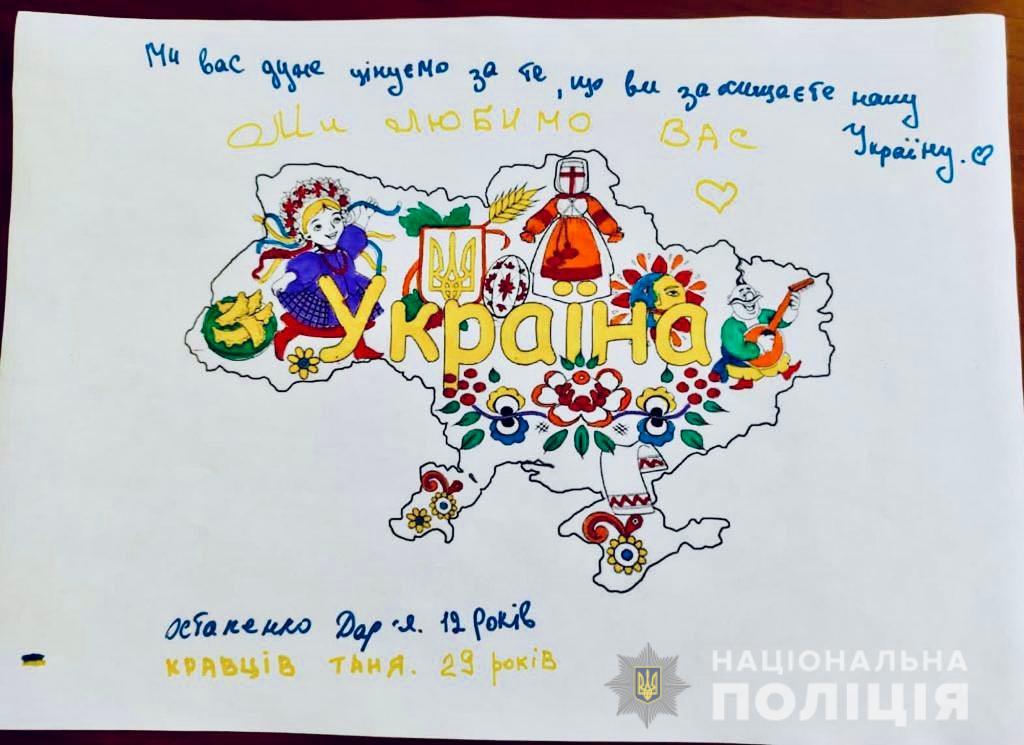 Ми вас дуже цінуємо за те, що ви захищаєте нашу
Україну.
Ми любимо вас
Україна
Остапенко Дар'я. 12 років
Кравців Таня. 29 років
НАЦІОНАЛЬНА
ПОЛІЦІЯ